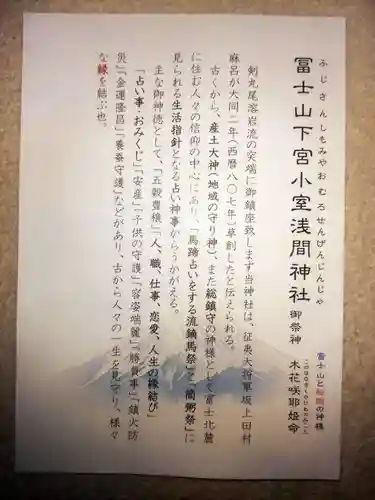 ふじさんしもみやおむろせんげんじんじゃ
冨士山下宮小室浅間神社
御祭神
富士山と桜の神様
このはなさくやひめのみこと
木花咲耶姫命
剣丸尾溶岩流の突端に御鎮座致します当神社は、征夷大将軍坂上田村
麻呂が大同二年(西暦八〇七年)草創したと伝えられる。
古くから、産土大神(地域の守り神)、また総鎮守の神様として富士北麓
に住む人々の信仰の中心にあり、「馬蹄占いをする流鏑馬祭」「筒粥祭」に
見られる生活指針となる占い神事からうかがえる。
主な御神徳として、「五穀豊穣」「人、職、仕事、恋愛、人生の縁結び」
「占い事・おみくじ」「安産」「子供の守護」「容姿端麗」「勝負事」「鎮火防
災」「金運隆昌」「養蚕守護」などがあり、古から人々の一生を見守り、様々
な縁を結ぶ也。